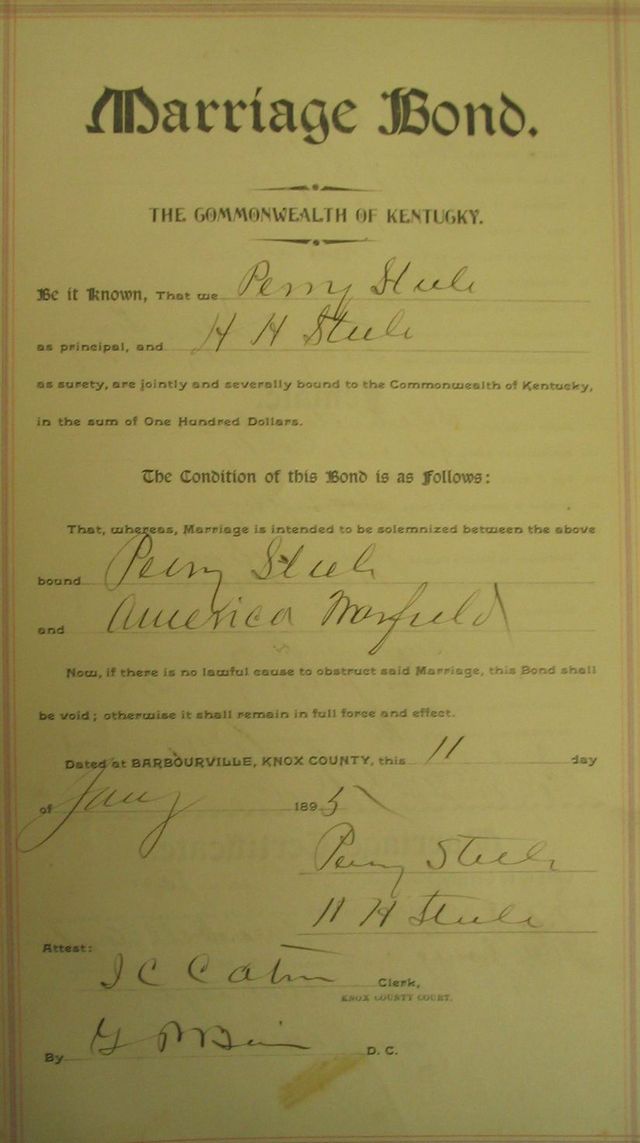 Marriage Bond.
THE COMMONWEALTH OF KENTUCKY.
Be it Known, That we Perry Steele
as principal, and H H Steele
as surety, are jointly and severally bound to the Commonwealth of Kentucky,
in the sum of One Hundred Dollars.
The Condition of this Bond is as Follows:
That, whereas, Marriage is intended to be solemnized between the above
bound Perry Steele
and America Warfield
Now, if there is no lawful cause to obstruct said Marriage, this Bond shall
be void; otherwise it shall remain in full force and effect.
Dated at BARBOURVILLE, KNOX COUNTY, this 11 day
of Jany 1895
Perry Steele
H H Steele
Attest:
Clerk,
KNOX COUNTY COURT.
By D. C.